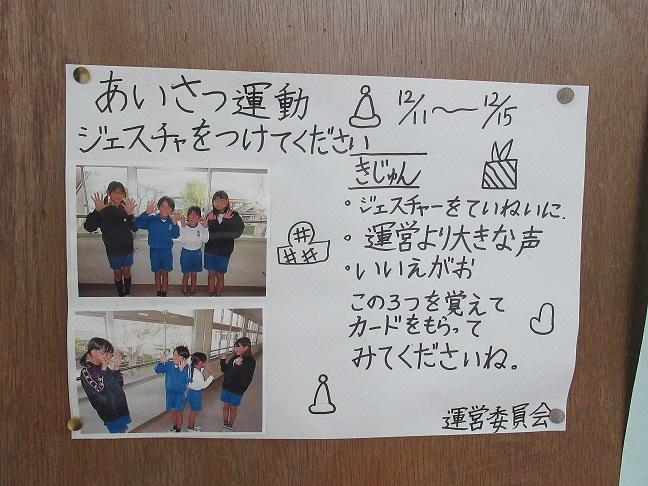 あいさつ運動
12/11〜12/15
ジェスチャをつけてください
きじゅん
・ジェスチャーをていねいに.
・運営より大きな声
・いいえがお
この3つを覚えて
カードをもらって
みてくださいね。
運営委員会